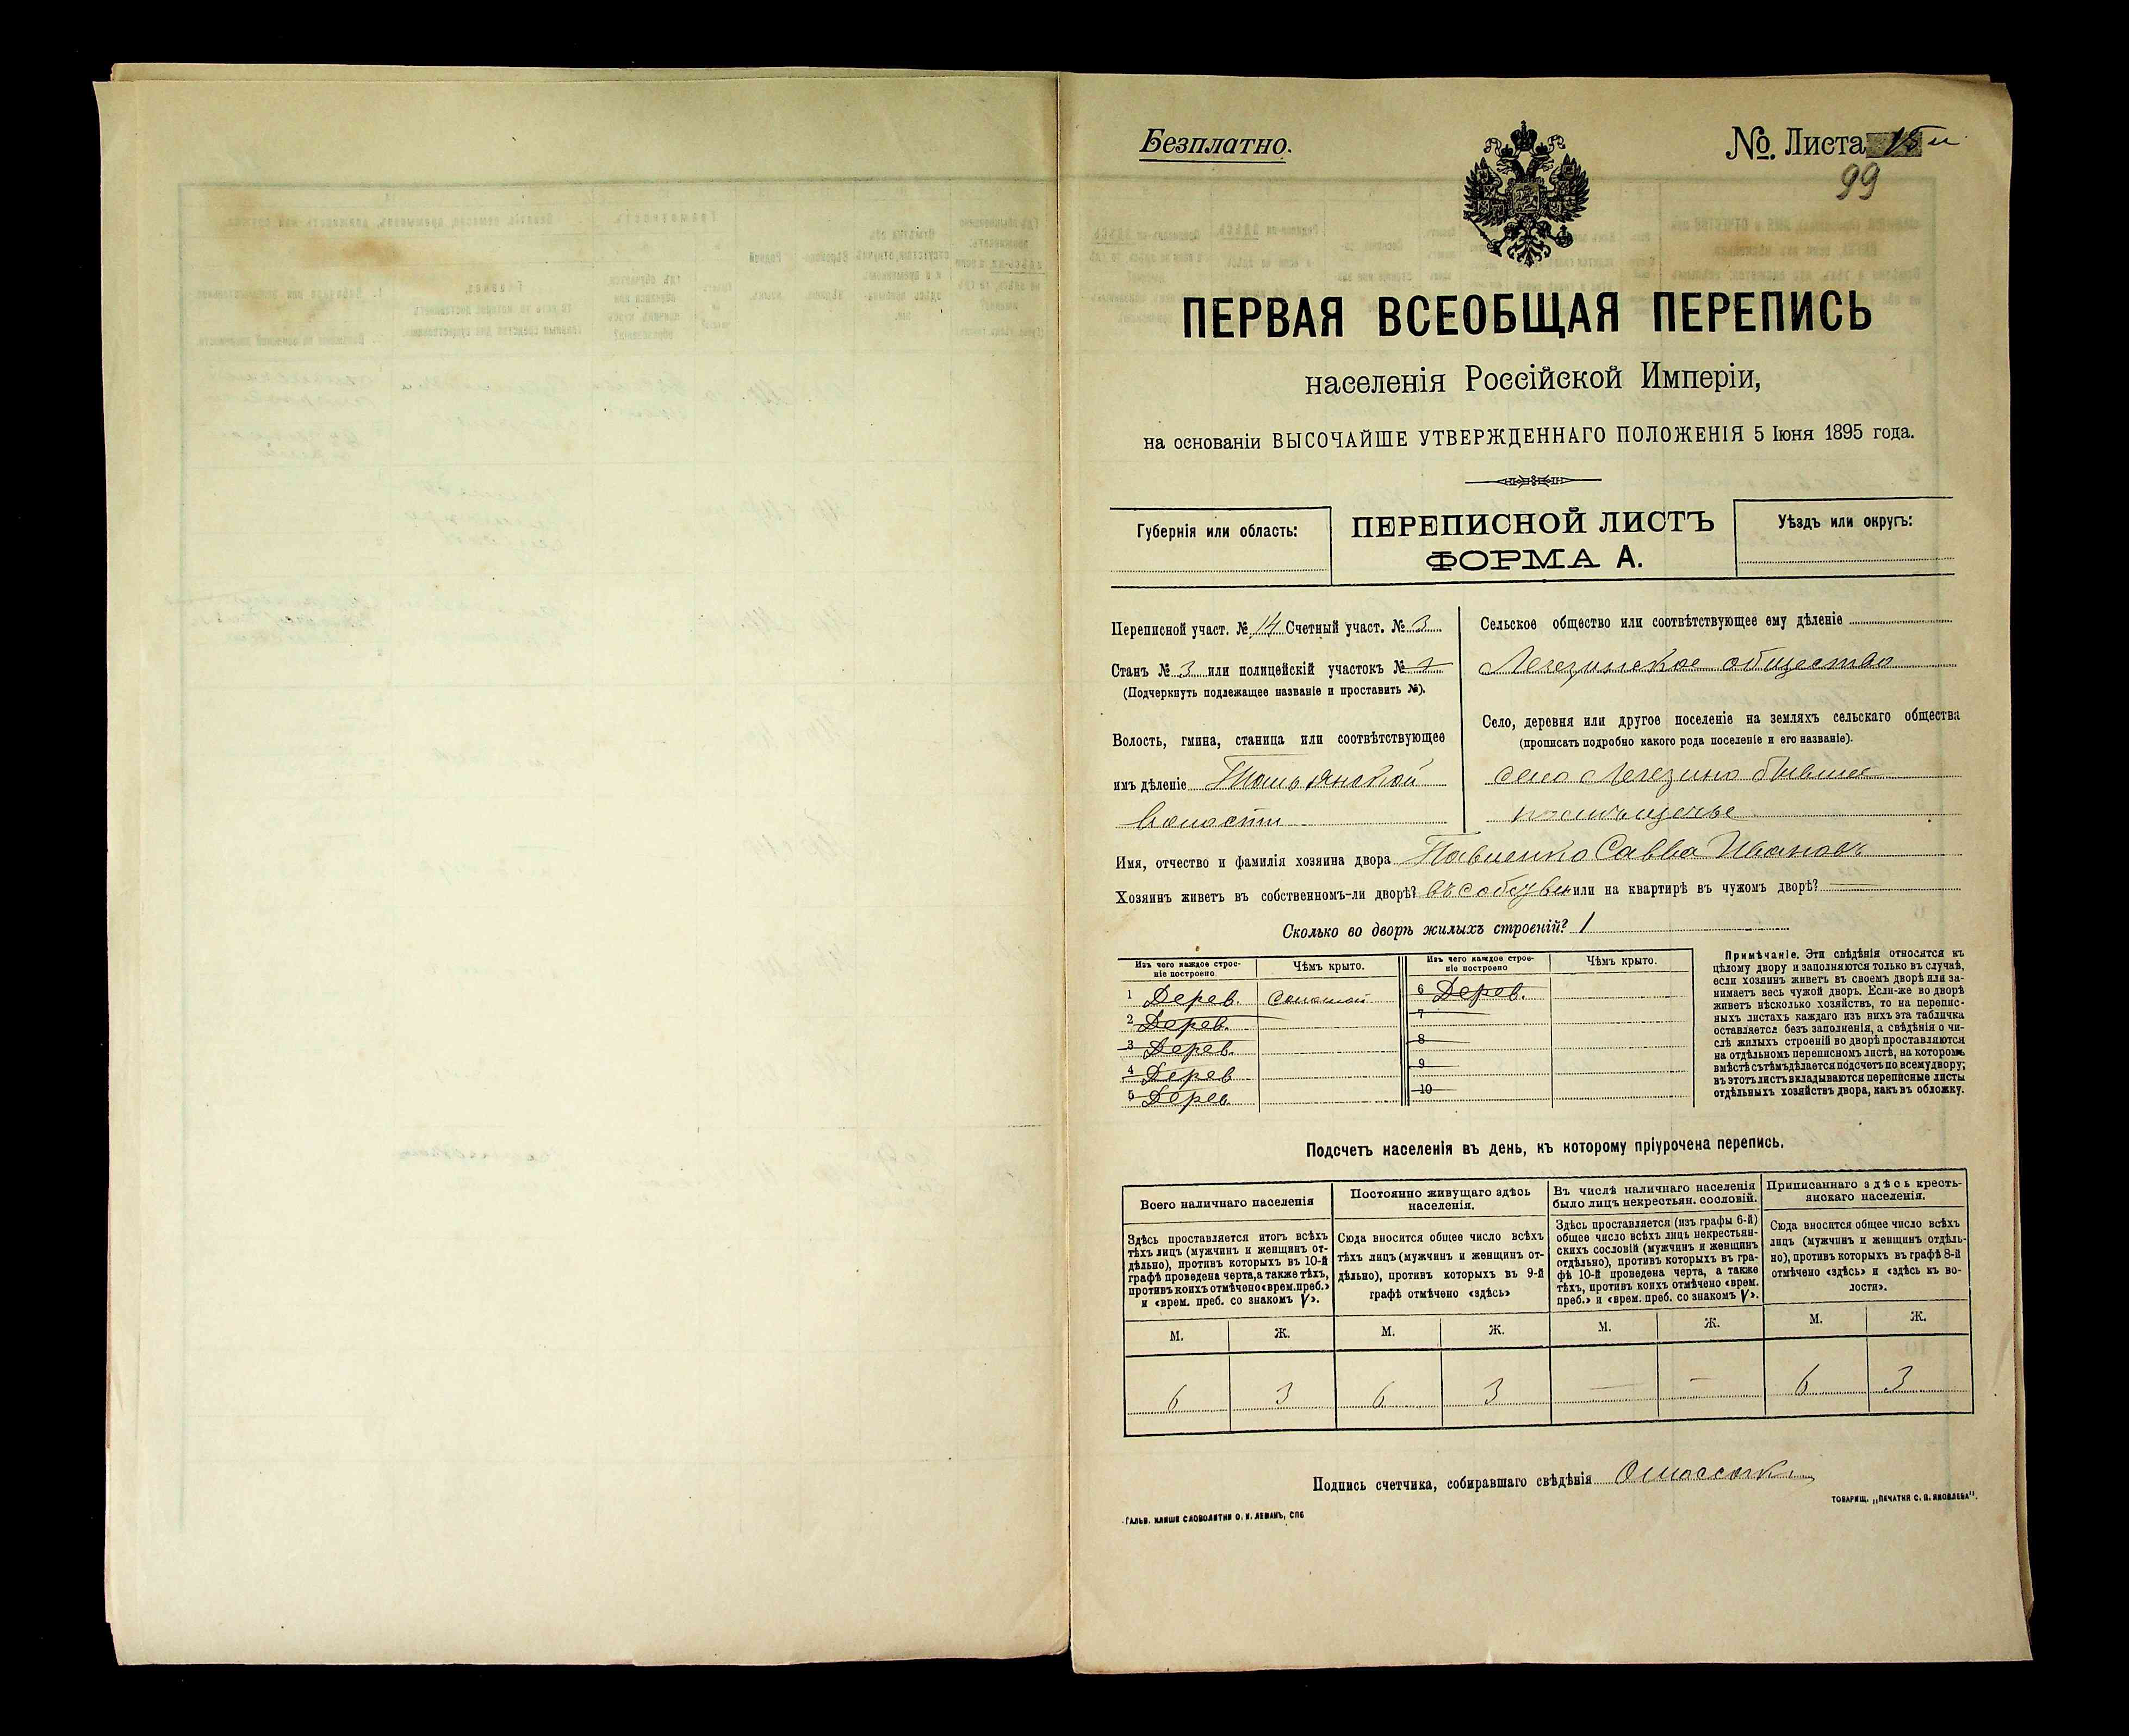 Безплатно.
№. Листа 15 и
99
ПЕРВАЯ ВСЕОБЩАЯ ПЕРЕПИСЬ
населенія Россійской Имперіи,
на основаніи ВЫСОЧАЙШЕ УТВЕРЖДЕННАГО ПОЛОЖЕНІЯ 5 Іюня 1895 года.
Губернія или область:
ПЕРЕПИСНОЙ ЛИСТЪ
ФОРМА А.
Уѣздъ или округъ:
Переписной участ. № 14 Счетный участ. № 3
Станъ № 3 или полицейскій участокъ №
(Подчеркнуть подлежащее названіе и проставить №).
Волость, гмина, станица или соотвѣтствующее
имъ дѣленіе Тальянской
волости
Сельское общество или соотвѣтствующее ему дѣленіе
Легезинское общество
Село, деревня или другое поселеніе на земляхъ сельскаго общества
(прописать подробно какого рода поселеніе и его названіе).
село Легезино бывшее
помѣщечье
Имя, отчество и фамилія хозяина двора Павленко Савва Ивановъ
Хозяинъ живетъ въ собственномъ-ли дворѣ? въ собствен или на квартирѣ въ чужомъ дворѣ? —
Сколько во дворѣ жилыхъ строеній? 1
Изъ чего каждое строе-
ніе построено
Чѣмъ крыто.
1 Дерев. Соломой
2 Дерев.
3 Дерев.
4 Дерев
5 Дерев.
Изъ чего каждое строе-
ніе построено
Чѣмъ крыто.
6 Дерев.
7
8
9
10
Примѣчаніе. Эти свѣдѣнія относятся къ
цѣлому двору и заполняются только въ случаѣ,
если хозяинъ живетъ въ своемъ дворѣ или за-
нимаетъ весь чужой дворъ. Если-же во дворѣ
живетъ нѣсколько хозяйствъ, то на перепис-
ныхъ листахъ каждаго изъ нихъ эта табличка
оставляется безъ заполненія, а свѣдѣнія о чи-
слѣ жилыхъ строеній во дворѣ проставляются
на отдѣльномъ переписномъ листѣ, на которомъ
вмѣстѣ съ тѣмъ дѣлается подсчетъ по всему двору;
въ этотъ листъ вкладываются переписные листы
отдѣльныхъ хозяйствъ двора, какъ въ обложку.
Подсчетъ населенія въ день, къ которому пріурочена перепись.
Всего наличнаго населенія
Здѣсь проставляется итогъ всѣхъ
тѣхъ лицъ (мужчинъ и женщинъ от-
дѣльно), противъ которыхъ въ 10-й
графѣ проведена черта, а также тѣхъ,
противъ коихъ отмѣчено «врем. преб.»
и «врем. преб. со знакомъ V».
Постоянно живущаго здѣсь
населенія.
Сюда вносится общее число всѣхъ
тѣхъ лицъ (мужчинъ и женщинъ от-
дѣльно), противъ которыхъ въ 9-й
графѣ отмѣчено «здѣсь»
Въ числѣ наличнаго населенія
было лицъ некрестьян. сословій.
Здѣсь проставляется (изъ графы 6-й)
общее число всѣхъ лицъ некрестьян-
скихъ сословій (мужчинъ и женщинъ
отдѣльно), противъ которыхъ въ гра-
фѣ 10-й проведена черта, а также
тѣхъ, противъ коихъ отмѣчено «врем.
преб.» и «врем. преб. со знакомъ V».
Приписаннаго здѣсь кресть-
янскаго населенія.
Сюда вносится общее число всѣхъ
лицъ (мужчинъ и женщинъ отдѣль-
но), противъ которыхъ въ графѣ 8-й
отмѣчено «здѣсь» и «здѣсь къ во-
лости».
М. Ж. М. Ж. М. Ж. М. Ж.
6 3 6 3 — — 6 3
Подпись счетчика, собиравшаго свѣдѣнія
ГАЛЬВ. КЛИШЕ СЛОВОЛИТНИ О. И. ЛЕМАНЪ, СПБ
ТОВАРИЩ. „ПЕЧАТНЯ С. П. ЯКОВЛЕВА".